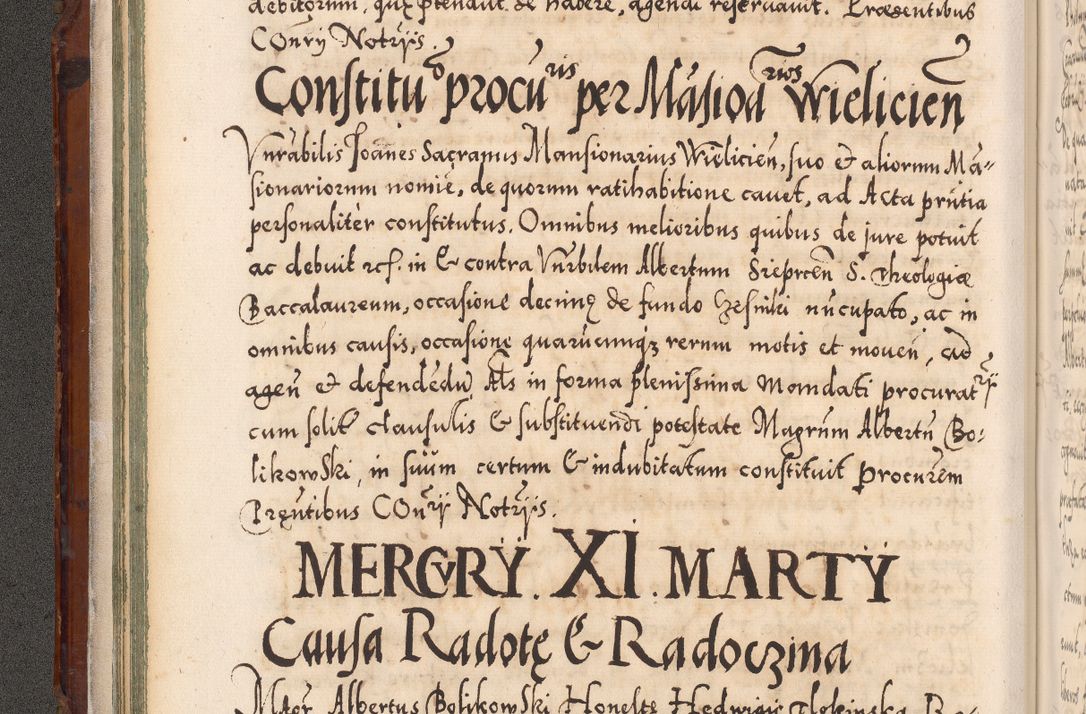 debitorum, quę ptendant. se habere, agendi reservavit. Præsentibus
COnrÿ Notrÿs.
Constitu͠o procu͠ris per Ma͠siona͠rios Wielicien͠
Vn͠rabilis Joan͠es Sacranus Mansionarius Wielicien͠, suo et aliorum Ma͠=
sionariorum nomi͠e, de quorum ratihabitione cavet, ad Acta prn͠tia
personalitèr constitutus. Omnibus melioribus quibus de jure potuit
ac debuit in & contra Vn͠rbilem Albertum S. Theologiæ
Baccalaureum, occasione decimę de fundo nu͠cupato, ac in
omnibus causis, occasione quarumcunqz rerum motis et moven͠, ad
agen͠ et defende͠du͠ Als in forma plenissima Mandati procurat͠rÿ
cum solit͠ clausulis & substituendi potestate Magrum͠ Albertu͠ Bo:
likowski, in suum certum & indubitatum constituit Procurem͠
Pręn͠tibus COnr͠ÿ Notr͠ÿs.
MERCVRŸ. XI. MARTŸ
Causa Radotę & Radoczina
Mg͠r Albertus Bolikowski Honeste Hedwigis